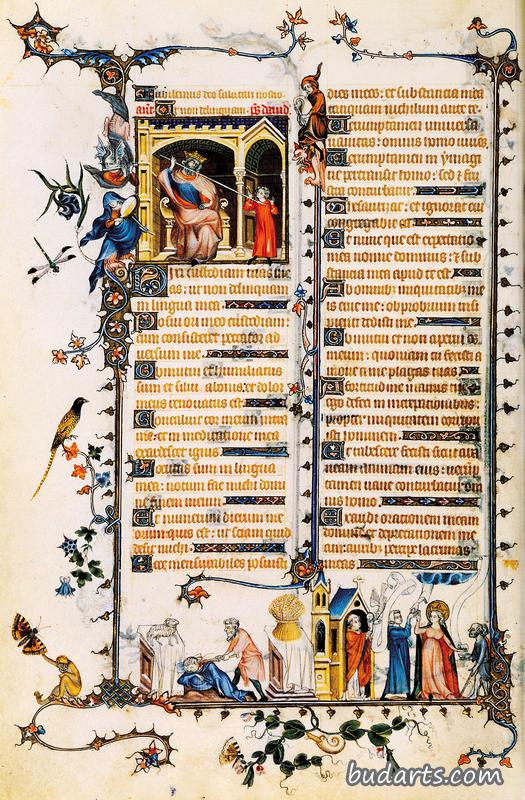 Jubilemus deo salutari nostro
ant. Ut non delinquam. ps dauid
Dixi custodiam uias me
as: ut non delinquam
in lingua mea.
Posui ori meo custodiam:
cum consisteret peccator ad
uersum me.
Obmutui et humiliatus
sum et silui a bonis: et dolor
meus renouatus est.
Concaluit cor meum intra
me: et in meditatione mea
exardescet ignis
Locutus sum in lingua
mea: notum fac michi domi
ne finem meum
Et numerum dierum me
orum quis est: ut sciam quid
desit michi
Ecce mensurabiles posuisti
dies meos: et substantia mea
tanquam nichilum ante te.
Ueruptamen uniuersa
uanitas: omnis homo uiuens.
Ueruptamen in ymagi
ne pertransit homo: sed et frus
tra conturbatur
Thesaurizat: et ignorat cui
congregabit ea
Et nunc que est expectatio
mea nonne dominus: et sub
stantia mea apud te est.
Ab omnibus iniquitatibus me
is erue me: obprobrium insi
pienti dedisti me.
Obmutui et non aperui os
meum: quoniam tu fecisti a
moue a me plagas tuas
A fortitudine manus tue
ego defeci in increpationibus:
propter iniquitatem corri
puisti hominem.
Et tabescere fecisti sicut ara
neam animam eius: uerup
tamen uane conturbatur om
nis homo
Exaudi orationem meam
domine et deprecationem me
am: auribus percipe lacrimas
meas
budarts.com